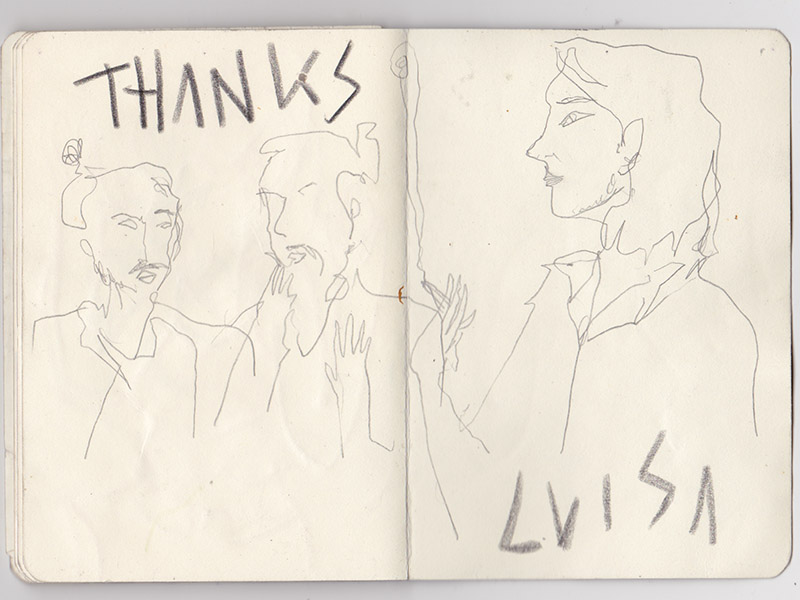 THANKS
LUISA